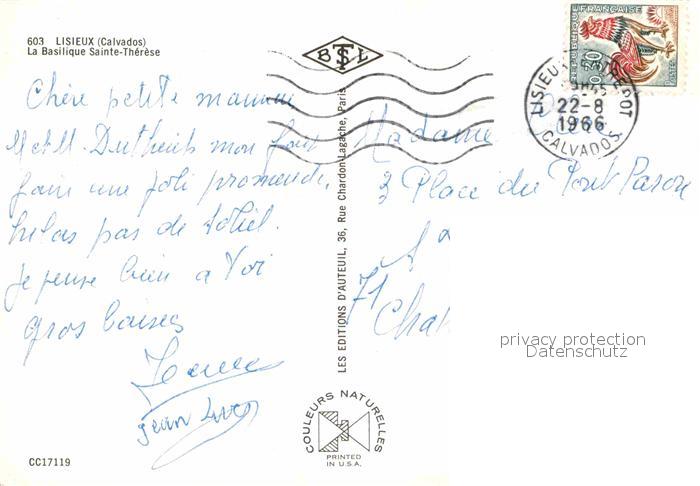 603 LISIEUX (Calvados)
La Basilique Sainte-Thérèse
B T S L
RÉPUBLIQUE FRANÇAISE
0,30 POSTES
LISIEUX ENTREPOT
22-8
1966
CALVADOS
Chère petite maman
M et M. Dutheuils mon fait
faire une joli promenade,
helas pas de soleil.
je pense bien a Toi
gros baises
jean Luc
LES EDITIONS D'AUTEUIL, 36, Rue Chardon-Lagache, Paris
Madame
3 Place du Pont
71
COULEURS NATURELLES
PRINTED
IN U.S.A.
CC17119
privacy protection
Datenschutz